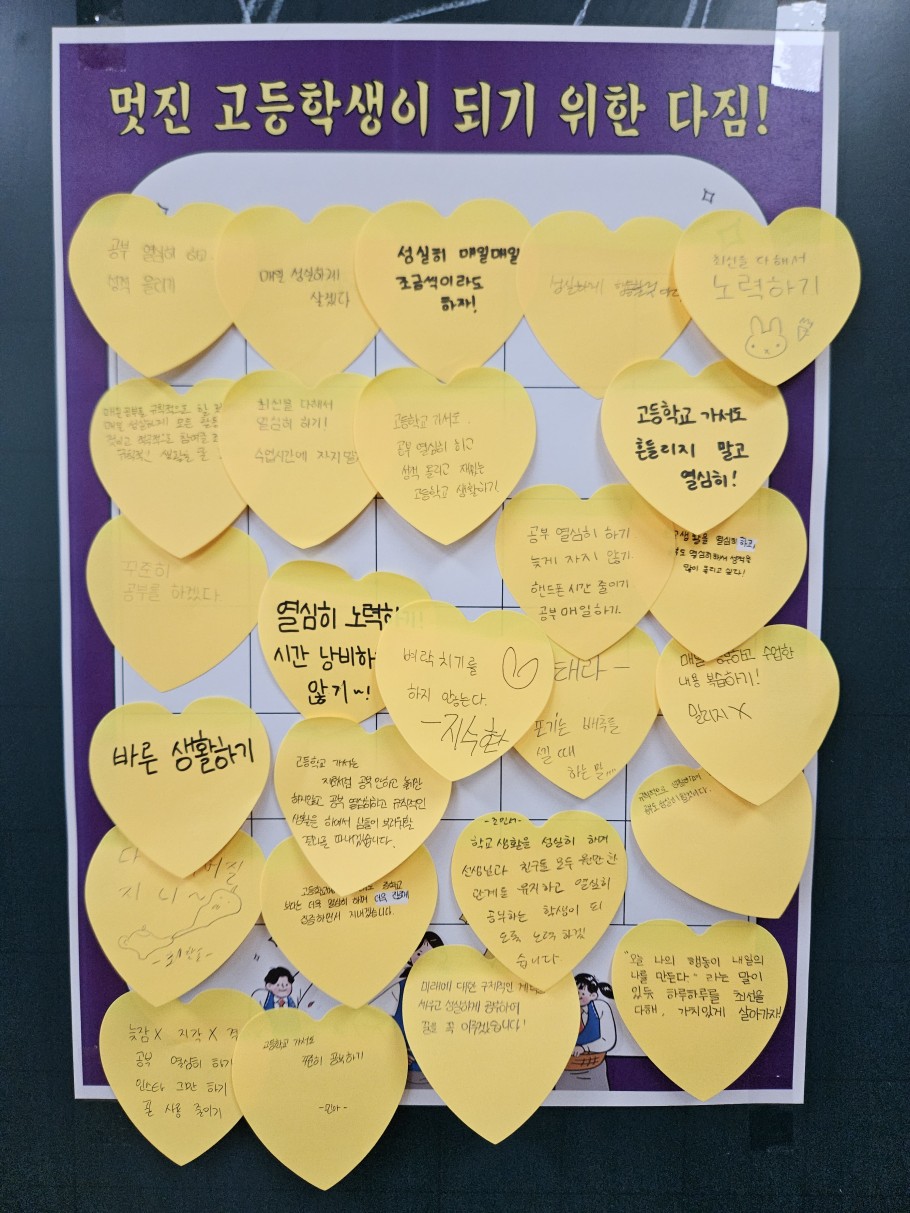 멋진 고등학생이 되기 위한 다짐!
공부 열심히 하고
성적 올리기
매일 성실하게
살겠다
성실히 매일매일
조금씩이라도
하자!
성실하게
최선을 다해서
노력하기
매일 공부를 규칙적으로
매일 성실하게 모든
적극적으로 참여를
규칙적인 생활을
최선을 다해서
열심히 하기!
수업시간에 자지 말
고등학교 가서도
공부 열심히 하고
성적 올리고 재밌는
고등학교 생활하기.
고등학교 가서도
흔들리지 말고
열심히!
꾸준히
공부를 하겠다
공부 열심히 하기
늦게 자지 않기.
핸드폰 시간 줄이기
공부 매일 하기.
열심히 하고,
열심히 해서 성적을
많이 올리고 싶다!
열심히 노력하
시간 낭비하
않기~!
벼락치기를
하지 않는다.
포기는 배추를
셀 때
하는 말
매일 공부하고 수업한
내용 복습하기!
밀리지 X
바른 생활하기
고등학교 가서는
하지않고 공부 열심히하고 규칙적인
학교 생활을 성실히 하며
선생님과 친구들 모두 원만한
관계를 유지하고 열심히
공부하는 학생이 되
도록 노력하겠
습니다.
지 니 ~
고등학교
보다는 더욱 열심히 하며 더욱
집중하면서 지내겠습니다.
"오늘 나의 행동이 내일의
나를 만든다" 라는 말이
있듯 하루하루를 최선을
다해, 가치있게 살아가자!
미래에 대한 구체적인
세우고 성실하게 공부하여
꿈을 꼭 이루겠습니다!
늦잠 X 지각 X
공부 열심히 하기
인스타 그만 하기
폰 사용 줄이기
고등학교 가서도
꾸준히 공부하기